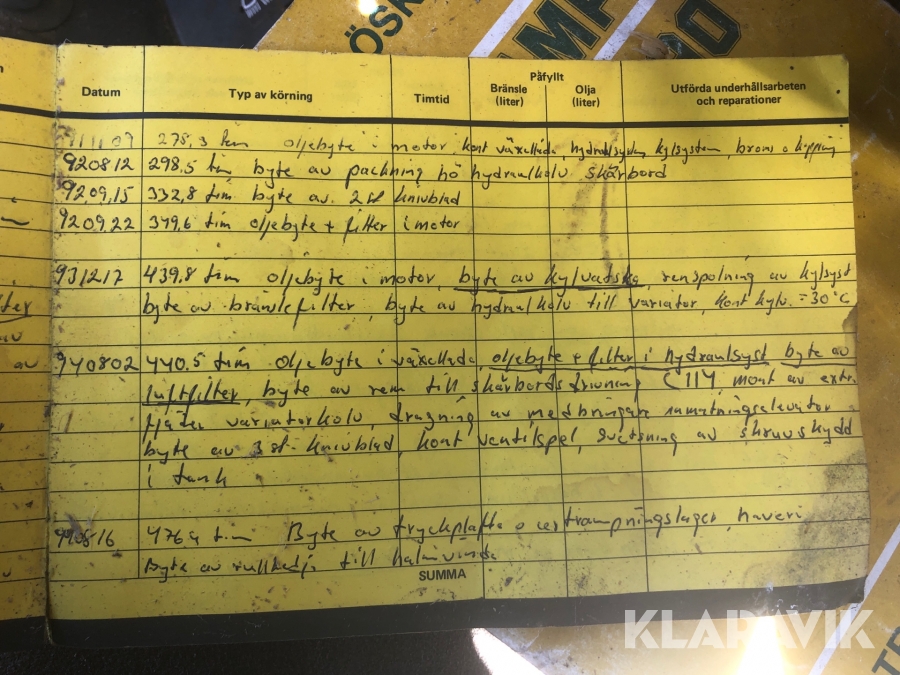 ÖSK
Påfyllt
Datum Typ av körning Timtid Bränsle (liter) Olja (liter) Utförda underhållsarbeten och reparationer
278,3 tim oljebyte i motor, kont växellåda, hydraulsystem, kylsystem, broms o
920812 298.5 tim byte av packning hö hydraulkolv skärbord
9209.15 332,8 tim byte av 2 st knivblad
9209.22 379,6 tim oljebyte + filter i motor
931217 439.8 tim oljebyte i motor, byte av kylvätska, renspolning av kylsyst
byte av bränslefilter, byte av hydraulkolv till variator, kont kylv. -30°C
940802 440.5 tim oljebyte i växellåda, oljebyte + filter i hydraulsyst byte av
luftfilter, byte av rem till skärbordsdrivning C114, mont av extr.
fjäder variatorkolv, dragning av medbringare inmatningselevator
byte av 3 st knivblad, kont ventilspel, svetsning av skruvskydd
i tank
476,4 tim Byte av tryckplatta o urtrampningslager, haveri
Byte av rullkedja till halmvinda
SUMMA
KLARAVIK